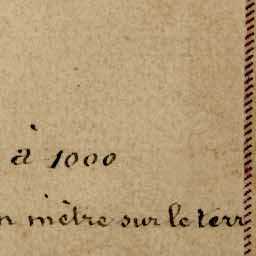 à 1000
n mètre sur le terr